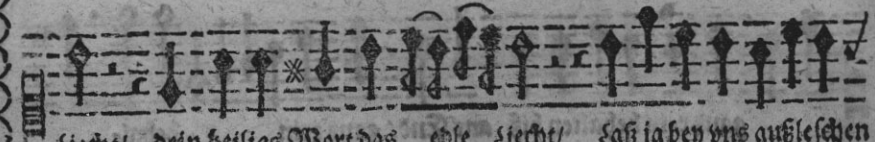 dein heiliges Wort das edle Liecht/ Laß ja bey vns außleschen